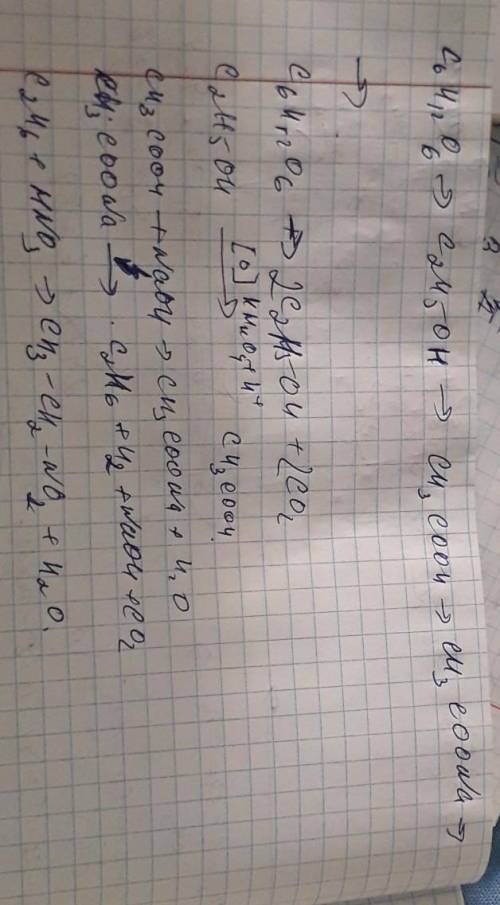 C6H12O6 → C2H5OH → CH3COOH → CH3COONa →
→
C6H12O6 → 2C2H5OH + 2CO2
C2H5OH [O] KMnO4 + H+ → CH3COOH.
CH3COOH + NaOH → CH3COONa + H2O
CH3COONa → C2H6 + H2 + NaOH + CO2
C2H6 + HNO3 → CH3 - CH2 - NO2 + H2O.